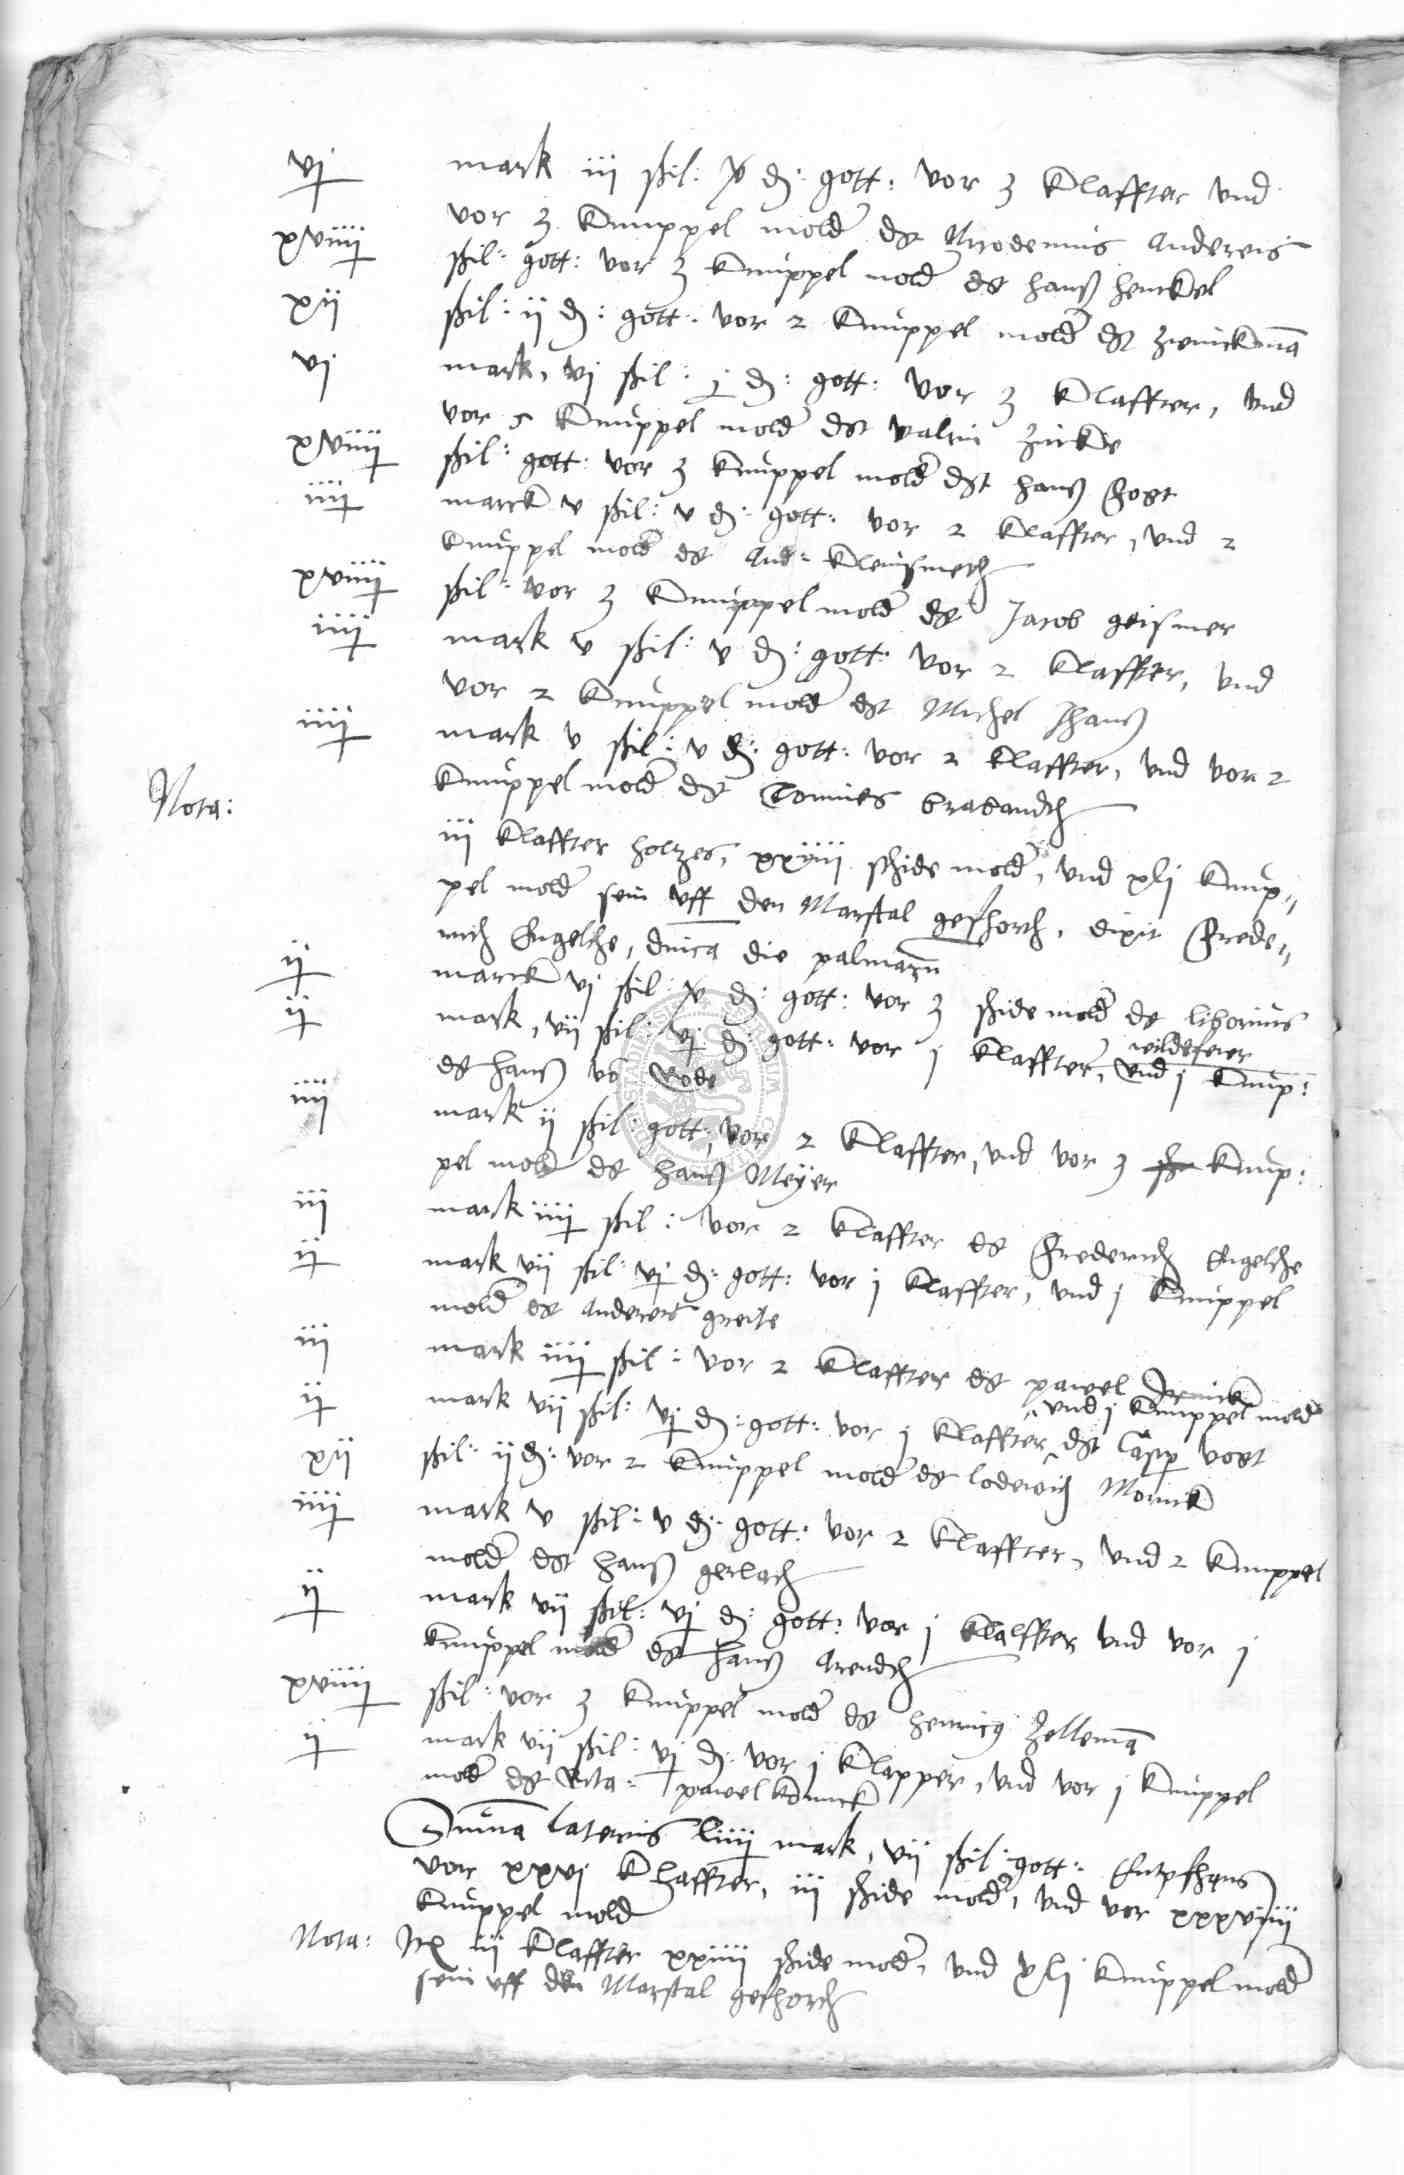 vj mark iii ßil: x d: gott: vor 3 klaffter vnd
vor 3 knuppel mold ds Nicodemus Andereis
xviiij ßil: gott: vor 3 knuppel mold ds hanß henckel
xij ßil: ij d: gott: vor 2 knuppel mold dst
vj mark, vj ßil: j d: gott: vor 3 klaffter, vnd
vor 5 knuppel mold dst valtin zincke
xviiij ßil: gott: vor 3 knuppel mold dst hanß Gost
iiij marck v ßil: v d: gott: vor 2 klaffter, vnd 2
knuppel mold ds And: kleinsmeth
xviiij ßil: vor 3 knuppel mold ds Jacob geismer
iiij mark v ßil: v d: gott: vor 2 klaffter, vnd
vor 2 knuppel mold dst Michel Hanß
iiij mark v ßil: v d: gott: vor 2 klaffter, vnd vor 2
knuppel mold ds Tonnies brabandth
Nota: iii klaffter holtzes, xxiiii schide mold, vnd xlj knup„
pel mold sein vff den Marstal gefhorth, dixit Frede„
rich Engelche, dnica die palmarum
ij marck vj ßil: x d: gott: vor 3 schide mold ds liborius
wildefeuer
ij mark, vij ßil: vj d: gott: vor j klaffter, vnd j knup:
ds hanß vo Rode
iiij mark ij ßil: gott: vor 2 klaffter, vnd vor 3 knup:
pel mold ds hanß Meyer
iij mark iiij ßil: vor 2 klaffter ds Frederich Engelche
ij mark vij ßil: vj d: gott: vor j klaffter, vnd j knuppel
mold ds Anderers greite
iij mark iiij ßil: vor 2 klaffter ds pawel
vnd j knuppel mold
ij mark vij ßil: vj d: gott: vor j klaffter dst Casp vogt
xij ßil: ij d: vor 2 knuppel mold ds loderwich Morrick
iiij mark v ßil: v d: gott: vor 2 klaffter, vnd 2 knuppel
mold dst hanß gerlach
ij mark vij ßil: vj d: gott: vor j klalffter vnd vor j
knuppel mold ds hanß Arendth
xviiij ßil: vor 3 knuppel mold ds henricg Zelleman
ij mark vij ßil: vj d: vor j klapper, vnd vor j knuppel
mold ds Rita: pawel
Suma lateris liiij mark, vij ßil: gott: Entpfhans
vor xxvj klhaffter, iii schide mold, vnd vor xxxviiij
knuppel mold
Nota: Itē iii klaffter xxiiii schide mold, vnd xlj knuppel mold
sein vff den Marstal gefhorth